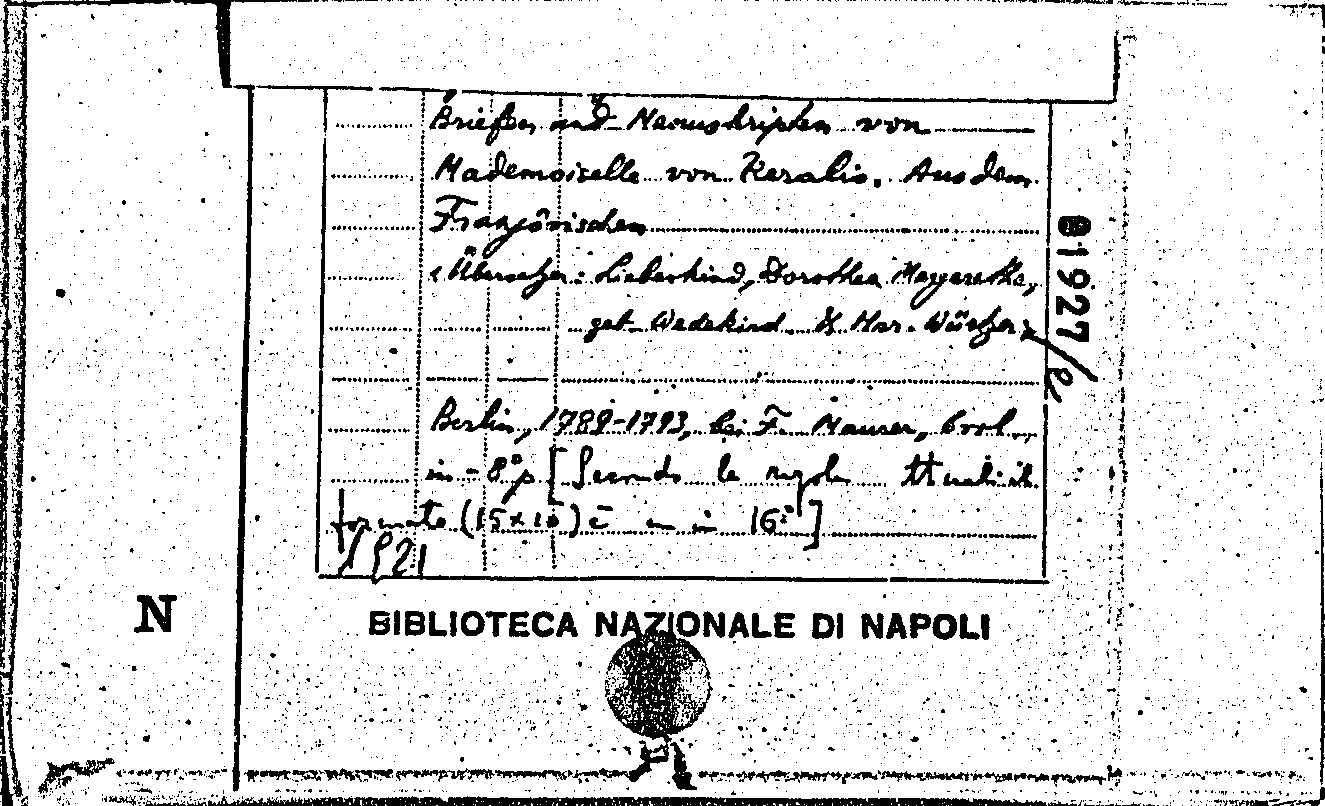 Briefen und Manuskripten von
Mademoiselle von Keralio. Aus dem
Französischen
<Übersetzer: Liebeskind, Dorothea Margarethe,
geb. Wedekind
Berlin, 1789-1793, bei F. Maurer, 6 vol.
in-8°p [Secondo le regole attuali il
formato (15x10) è in 16°]
1927/e
N
BIBLIOTECA NAZIONALE DI NAPOLI